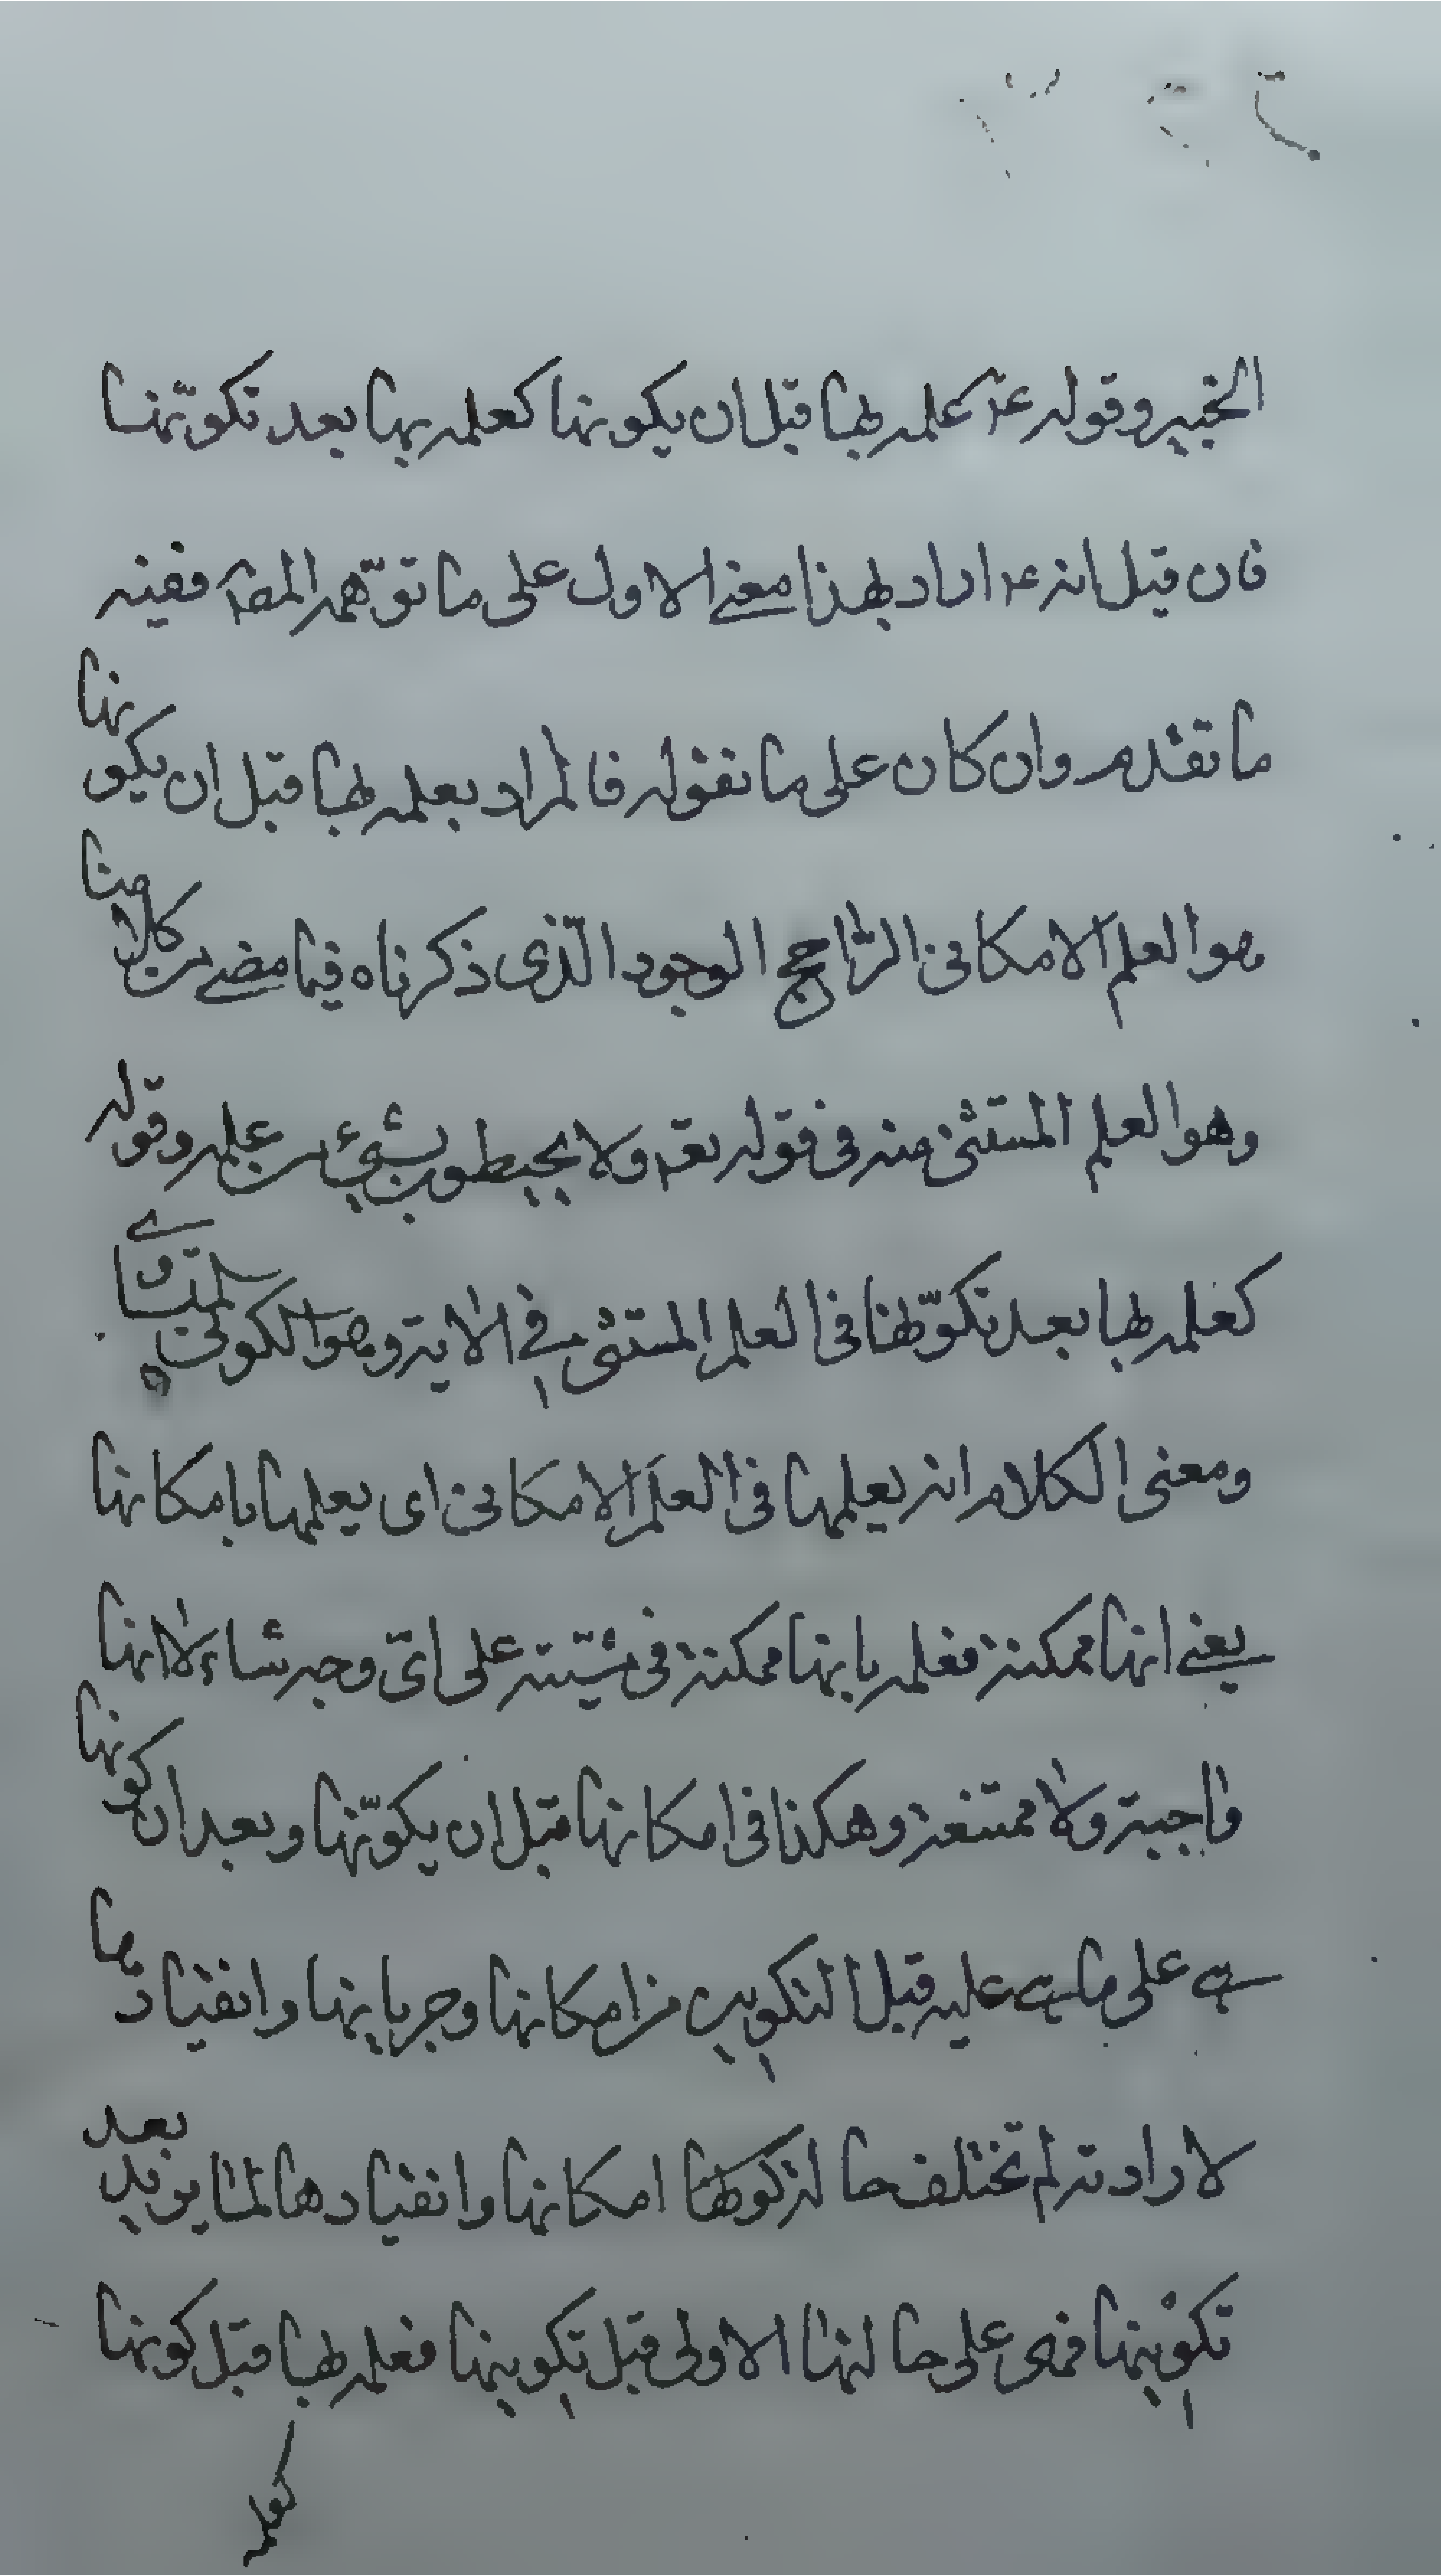 الخبير وقوله ع۴ علمه بها قبل ان يكونها كعلمه بها بعد تكوّنها
فان قيل انه ع۴ اراد بهذا معنى الاول على ما توهّمه المصـ۴ ففيه
ما تقدم وان كان على ما نقوله فالمراد بعلمه بها قبل ان يكونها
هو العلم الامكانى الراجح الوجود الّذى ذكرناه فيما مضى من كلامنا
وهو العلم المستثنى منه فى قوله تعـ۴ ولا يحيطون بشئ من علمه وقوله
كعلمه بها بعد تكوّنها فى العلم المستثنى فى الاية وهو الكونى
ومعنى الكلام انه يعلمها فى العلم الامكانى اى يعلمها بامكانها
يعنى انها ممكنة فعلمه بانها ممكنة فى مشيّته على اىّ وجه شاء لا انها
واجبة ولا ممتنعة وهكذا فى امكانها قبل ان يكوّنها وبعد ان كونها
هى على ما هى عليه قبل التكوين من امكانها وجريانها وانقيادها
لارادته لم تختلف حالتا كونها امكانها وانقيادها لما يريد بعد
تكوينها فهى على حالتها الاولى قبل تكوينها فعلمه بها قبل كونها
كعلمه